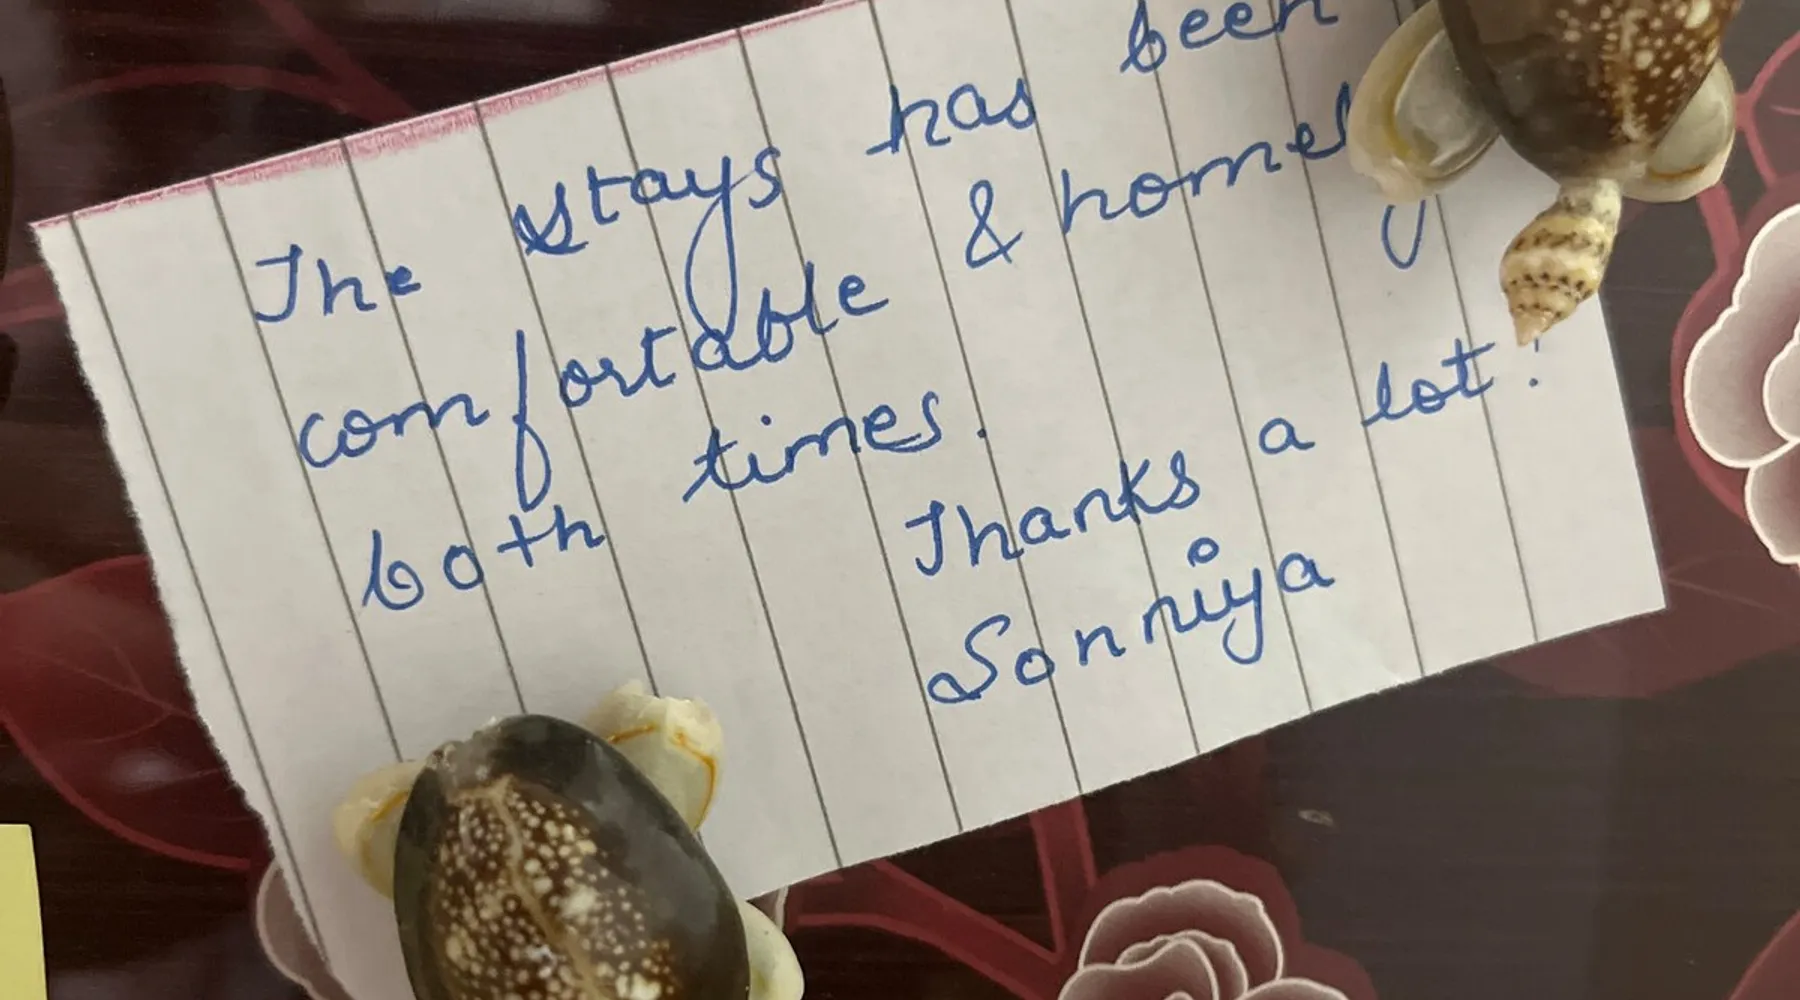 The stays has been
comfortable & homely
both times.
Thanks a lot!
Sonniya